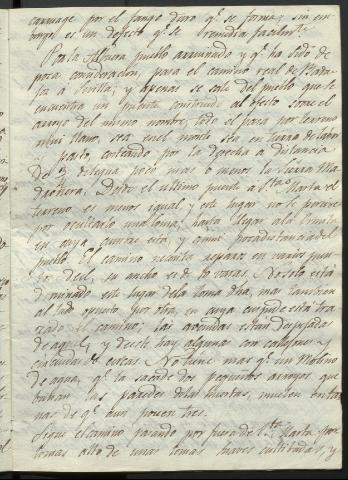 carruage por el fango duro q.e se forma; sin em-
bargo es un defecto q.e se remedia facilm.te
Por la Albuera pueblo arruinado y q.e ha sido de
poca consideracion, pasa el camino real de Bada-
joz a Sevilla; y apenas se sale del pueblo que se
encuentra un puente construido al efecto sobre el
arroyo del mismo nombre, todo el pasa por terreno
mui llano, sea en el monte sea en tierra de labor
y pasto, costeando por la derecha a distancia
De 3/4 de legua poco mas o menos la Sierra Ma-
Desde el ultimo puente a S.ta Marta el
terreno es menos igual y este lugar no se percive
por ocultarlo una loma, hasta llegar a la Ermita
en cuya cumbre esta, y a mui poca distancia del
pueblo. El camino necesita reparos en varios pun-
tos de el, su ancho es de 10 varas. No solo está
dominado este lugar de la loma dha, mas tambien
al lado opuesto por otra, en cuya está tra-
zado el camino; las avenidas estan despejadas
de aquel, y desde hay algunas con callejones
de cercas. No tiene mas q.e un Molino
de agua, q.e la saca de dos pequeños arroyos que
bañan las paredes de las huertas, muelen
de q.e aun poseen tres.
Sigue el camino pasando por fuera de S.ta Marta por
lomas alto de unas lomas suaves cultibadas, y